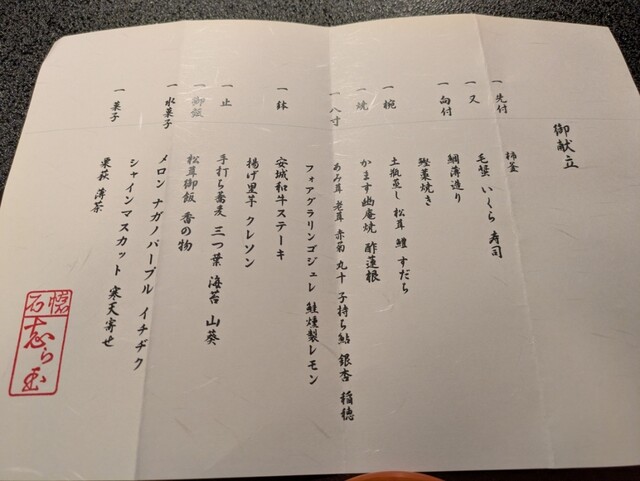 御献立
一 先付
柿釜
一 又
毛蟹 いくら 寿司
一 向付
網薄造り
鰹藁焼き
一 椀
土瓶蒸し 松茸 鱧 すだち
一 焼
かます幽庵焼 酢蓮根
一 八寸
あみ茸 老茸 赤菊 丸十 子持ち鮎 銀杏 稲穂
フォアグラリンゴジュレ 鮭燻製レモン
一 鉢
安城和牛ステーキ
揚げ里芋 クレソン
一 止
手打ち蕎麦 三つ葉 海苔 山葵
一 御飯
松茸御飯 香の物
一 水菓子
メロン ナガノパープル イチヂク
シャインマスカット 寒天寄せ
一 菓子
栗萩 薄茶
懐石
志ら玉